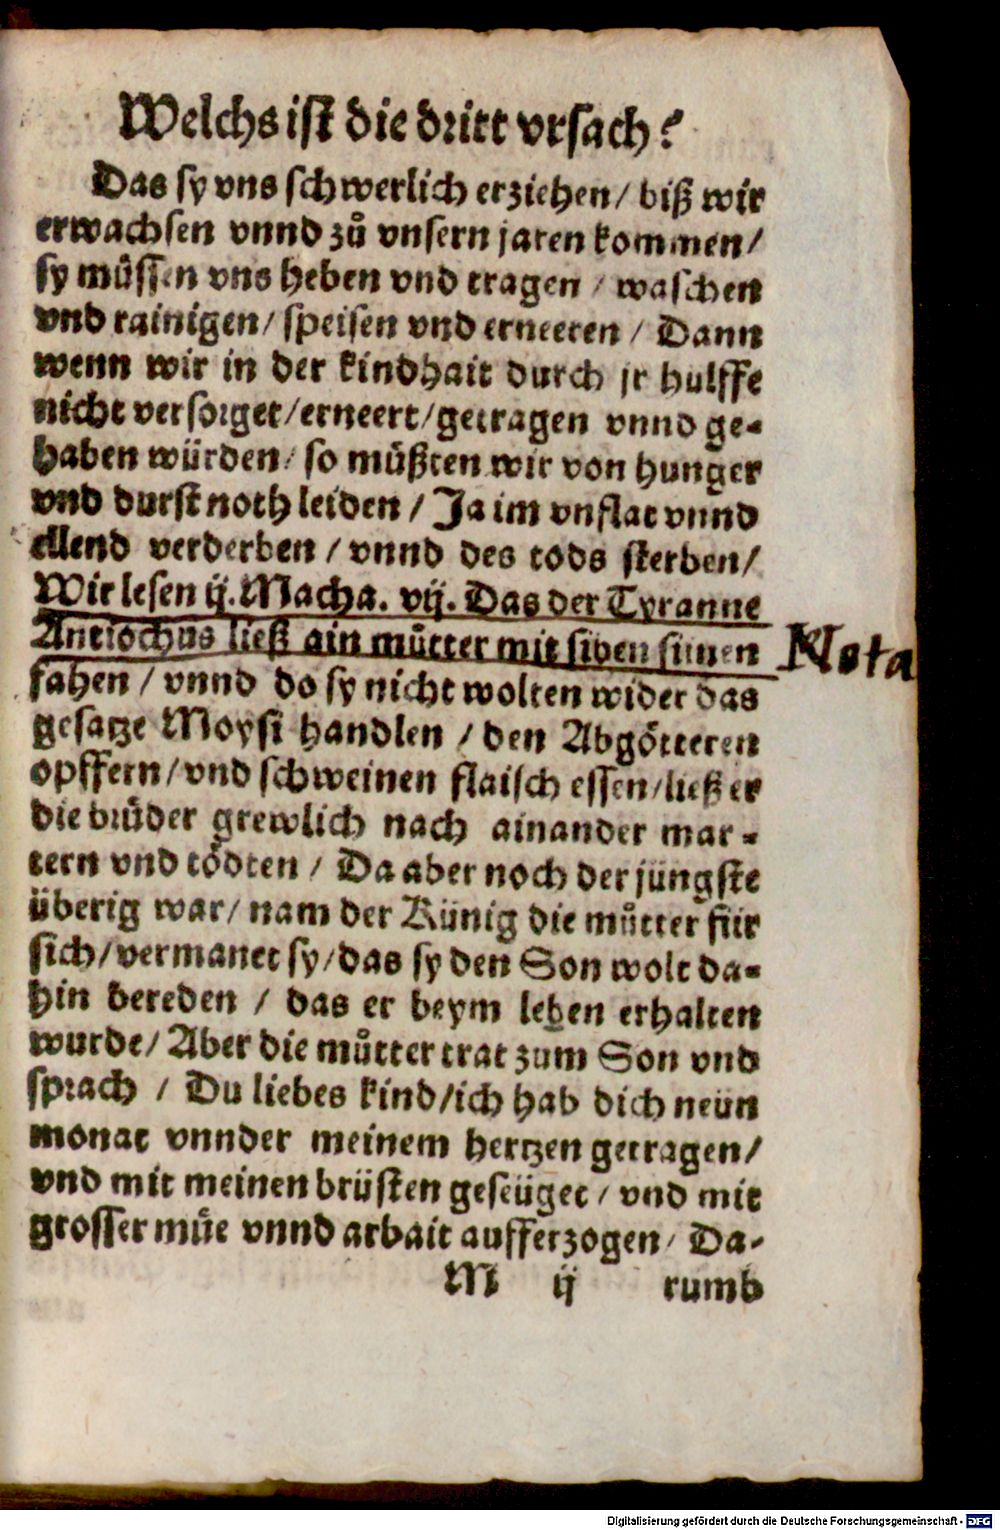 Welchs ist die dritt vrsach?
Das sy vns schwerlich erziehen/ biß wir
erwachsen vnnd zů vnsern jaren kommen/
sy můssen vns heben vnd tragen / waschen
vnd rainigen/ speisen vnd erneeren / Dann
wenn wir in der kindhait durch jr hulffe
nicht versorget/erneert/getragen vnnd ge-
haben würden/ so můßten wir von hunger
vnd durst noth leiden / Ja im vnflat vnnd
ellend verderben / vnnd des tods sterben/
Wir lesen ij. Macha. vij. Das der Tyranne
Antiochus ließ ain můtter mit siben sünen
Nota
fahen / vnnd do sy nicht wolten wider das
gesatze Moysi handlen / den Abgötteren
opffern/ vnd schweinen flaisch essen/ließ er
die brůder grewlich nach ainander mar-
tern vnd tödten / Da aber noch der jüngste
überig war/ nam der Künig die můtter für
sich/vermanet sy/das sy den Son wolt da-
hin bereden / das er beym leben erhalten
wurde/ Aber die můtter trat zum Son vnd
sprach / Du liebes kind/ich hab dich neün
monat vnnder meinem hertzen getragen/
vnd mit meinen brüsten geseüget / vnd mit
grosser můe vnnd arbait aufferzogen/ Da-
M ij rumb
Digitalisierung gefördert durch die Deutsche Forschungsgemeinschaft - DFG